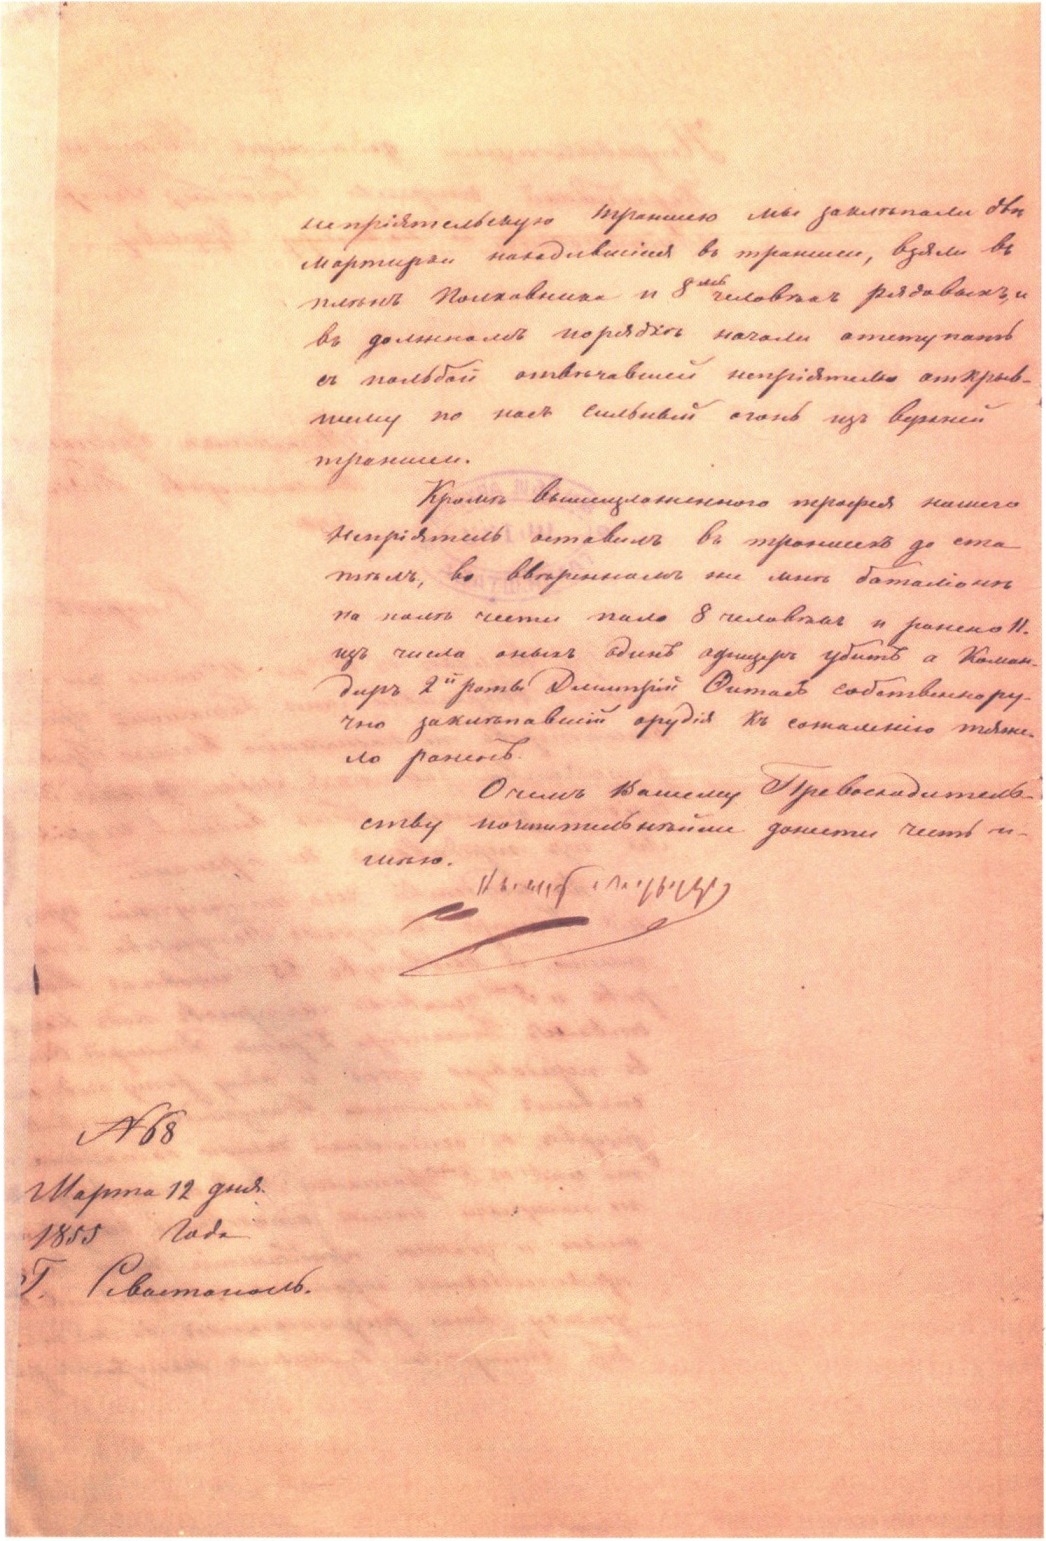 непріятельскую траншею мы заклѣпали двѣ
мортиры находившіяся въ траншеи, взяли въ
плѣнъ Полковника и 8 мь человѣкъ рядовыхъ, и
въ должномъ порядкѣ начали отступать
съ пальбой отвѣчавшей непріятелю открыв-
шему по насъ сильный огонь изъ верхней
траншеи.
Кромѣ вышеизложенного трофея нашего
Непріятель оставилъ въ траншеѣ до ста
тѣлъ, во ввѣренномъ же мнѣ баталіонѣ
на полѣ чести пало 8 человѣкъ и ранено 11.
изъ числа оныхъ одинъ офицеръ убитъ а Коман-
диръ 2й роты Дмитрій собственнору-
чно заклѣпавшій орудія къ сожалѣнію тяже-
ло раненъ.
О чемъ Вашему Превосходитель-
ству почтительнѣйше донести честь и-
мѣю.
№ 68
Марта 12 дня.
1855 Года
Г. Севастополь.